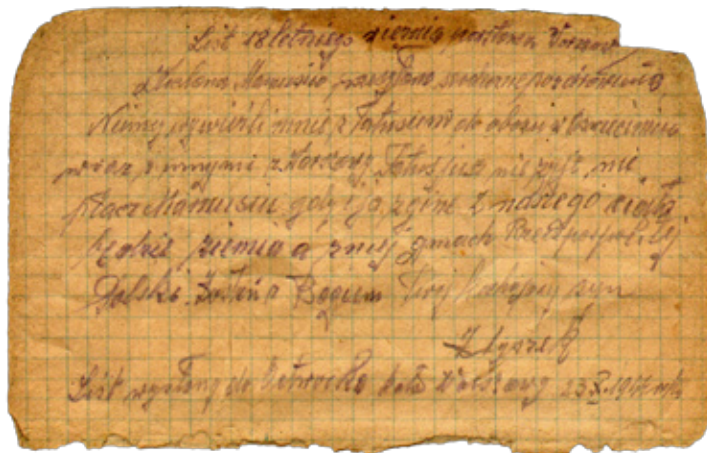 List 18 letniego
Kochana Mamusiu, przesyłam serdeczne pozdrowienia
Niemcy wywieźli mnie z Tatusiem do obozu w Oswiecimiu
wraz z innymi z Warszawy. Tatuś już nie żyje, nie
płacz Mamusiu gdy i ja zginę z naszego
będzie ziemia a z niej gmach Rzeczpospolitej
Polski. Zostań z Bogiem Twój kochający syn
Zbyszek
List wysłany do Otwocka koło Warszawy 23 X.1944